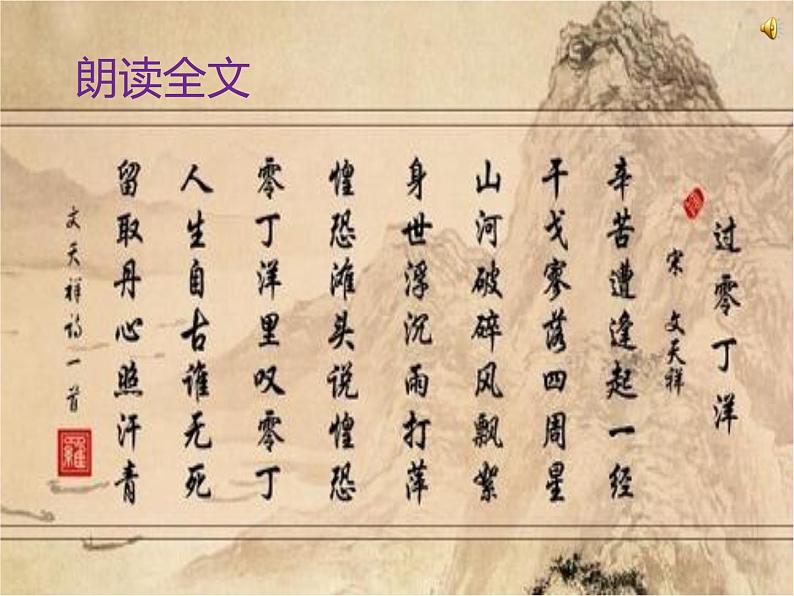 朗读全文
过零丁洋
宋 文天祥
辛苦遭逢起一经
干戈寥落四周星
山河破碎风飘絮
身世浮沉雨打萍
惶恐滩头说惶恐
零丁洋里叹零丁
人生自古谁无死
留取丹心照汗青
文天祥诗一首